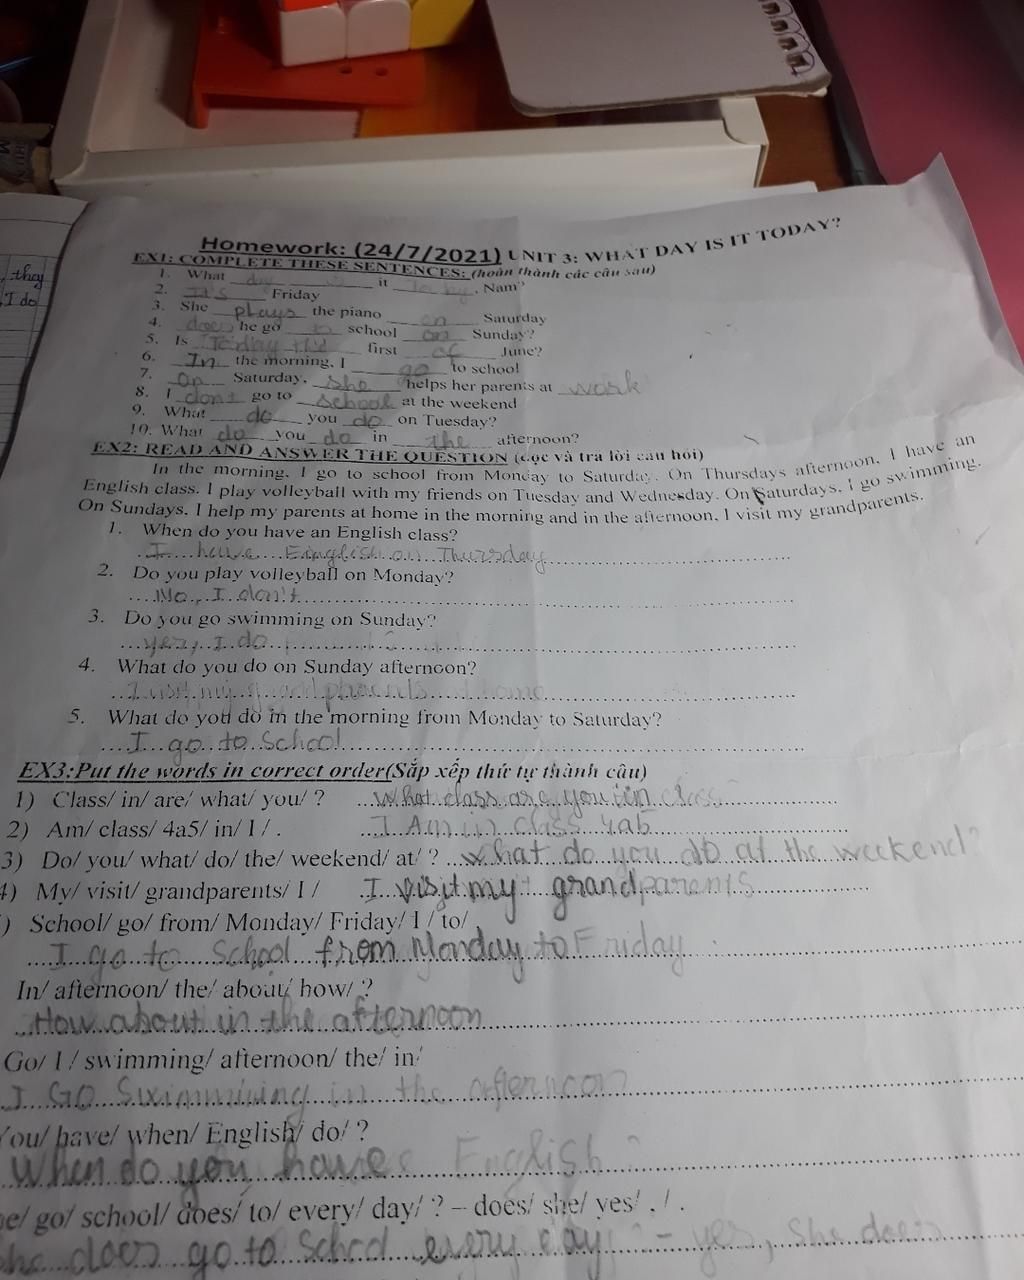 they
I do
Homework: (24/7/2021) UNIT 3: WHAT DAY IS IT TODAY?
EX1: COMPLETE THESE SENTENCES: (hoàn thành các câu sau)
1. What day is it today, Nam?
2. It's Friday
3. She plays the piano on Saturday
4. does he go to school on Sunday?
5. Is Today the first of June?
6. In the morning, I go to school
7. On Saturday, she helps her parents at work
8. I don't go to school at the weekend
9. What do you do on Tuesday?
10. What do you do in the afternoon?
EX2: READ AND ANSWER THE QUESTION (đọc và trả lời câu hỏi)
In the morning, I go to school from Monday to Saturday. On Thursdays afternoon, I have an
English class. I play volleyball with my friends on Tuesday and Wednesday. On Saturdays, I go swimming.
On Sundays, I help my parents at home in the morning and in the afternoon, I visit my grandparents.
1. When do you have an English class?
I have English on Thursday
2. Do you play volleyball on Monday?
No, I don't
3. Do you go swimming on Sunday?
yes, I do
4. What do you do on Sunday afternoon?
I visit my grandparents home
5. What do you do in the morning from Monday to Saturday?
I go to School
EX3:Put the words in correct order(Sắp xếp thứ tự thành câu)
1) Class/ in/ are/ what/ you/ ? What class are you in
2) Am/ class/ 4a5/ in/ I / . I Am in class 4a5
3) Do/ you/ what/ do/ the/ weekend/ at/ ? what do you do at the weekend?
4) My/ visit/ grandparents/ I / I visit my grandparents
) School/ go/ from/ Monday/ Friday/ I / to/
I go to School from Monday to Friday
In/ afternoon/ the/ about/ how/ ?
How about in the afternoon
Go/ I / swimming/ afternoon/ the/ in/
I Go Swimming in the afternoon
You/ have/ when/ English/ do/ ?
When do you have English?
he/ go/ school/ does/ to/ every/ day/ ? – does/ she/ yes/ . / .
she does go to School every day? - yes, she does